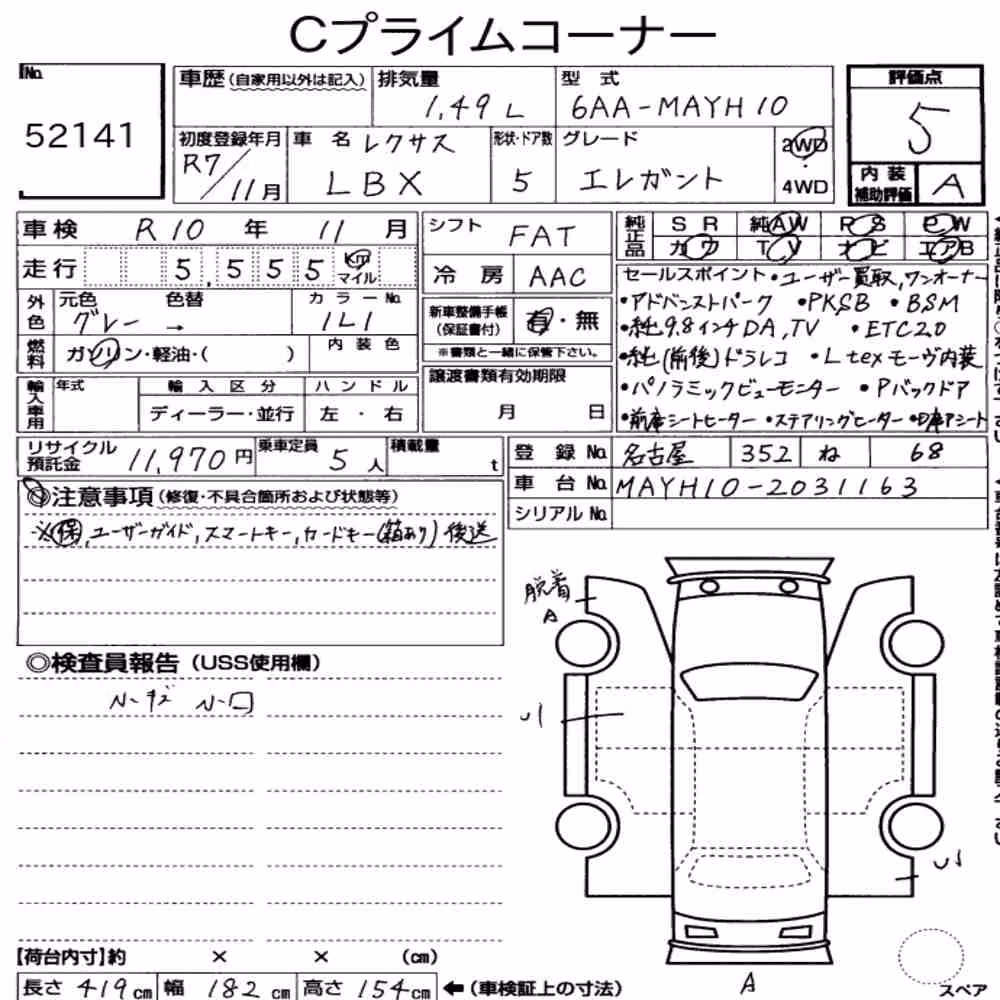 Cプライムコーナー
No.
52141
車歴(自家用以外は記入)
排気量
1,49 L
型 式
6AA-MAYH10
評価点
5
内装補助評価
A
初度登録年月
R7/11月
車 名 レクサス
LBX
形状・ドア数
5
グレード
エレガント
2WD
・
4WD
車検 R10 年 11 月
走行 5,555 Km マイル
外色 元色 グレー → 色替
カラーNo. 1L1
燃料 ガソリン・軽油・( )
内装色
輸入車用 年式
輸入区分 ディーラー・並行
ハンドル 左・右
シフト FAT
冷房 AAC
新車整備手帳(保証書付) 有・無
※書類と一緒に保管下さい。
譲渡書類有効期限
月 日
純正品 SR 純AW PS PW
カワ TV ナビ エアB
セールスポイント・ユーザー買取,ワンオーナー
・アドバンストパーク ・PKSB ・BSM
・純9.8インチDA,TV ・ETC2.0
・純(前後)ドラレコ ・Ltexモーヴ内装
・パノラミックビューモニター ・Pバックドア
・前座シートヒーター ・ステアリングヒーター ・D席Aシート
リサイクル預託金 11,970円
乗車定員 5人
積載量 t
登録No. 名古屋 352 ね 68
車台No. MAYH10-2031163
シリアルNo.
◎注意事項(修復・不具合箇所および状態等)
※(保),ユーザーガイド,スマートキー,カードキー(箱あり)後送
◎検査員報告(USS使用欄)
脱着
A
U1
US
A
スペア
【荷台内寸】約 × × (cm)
長さ 419cm 幅 182cm 高さ 154cm ←(車検証上の寸法)